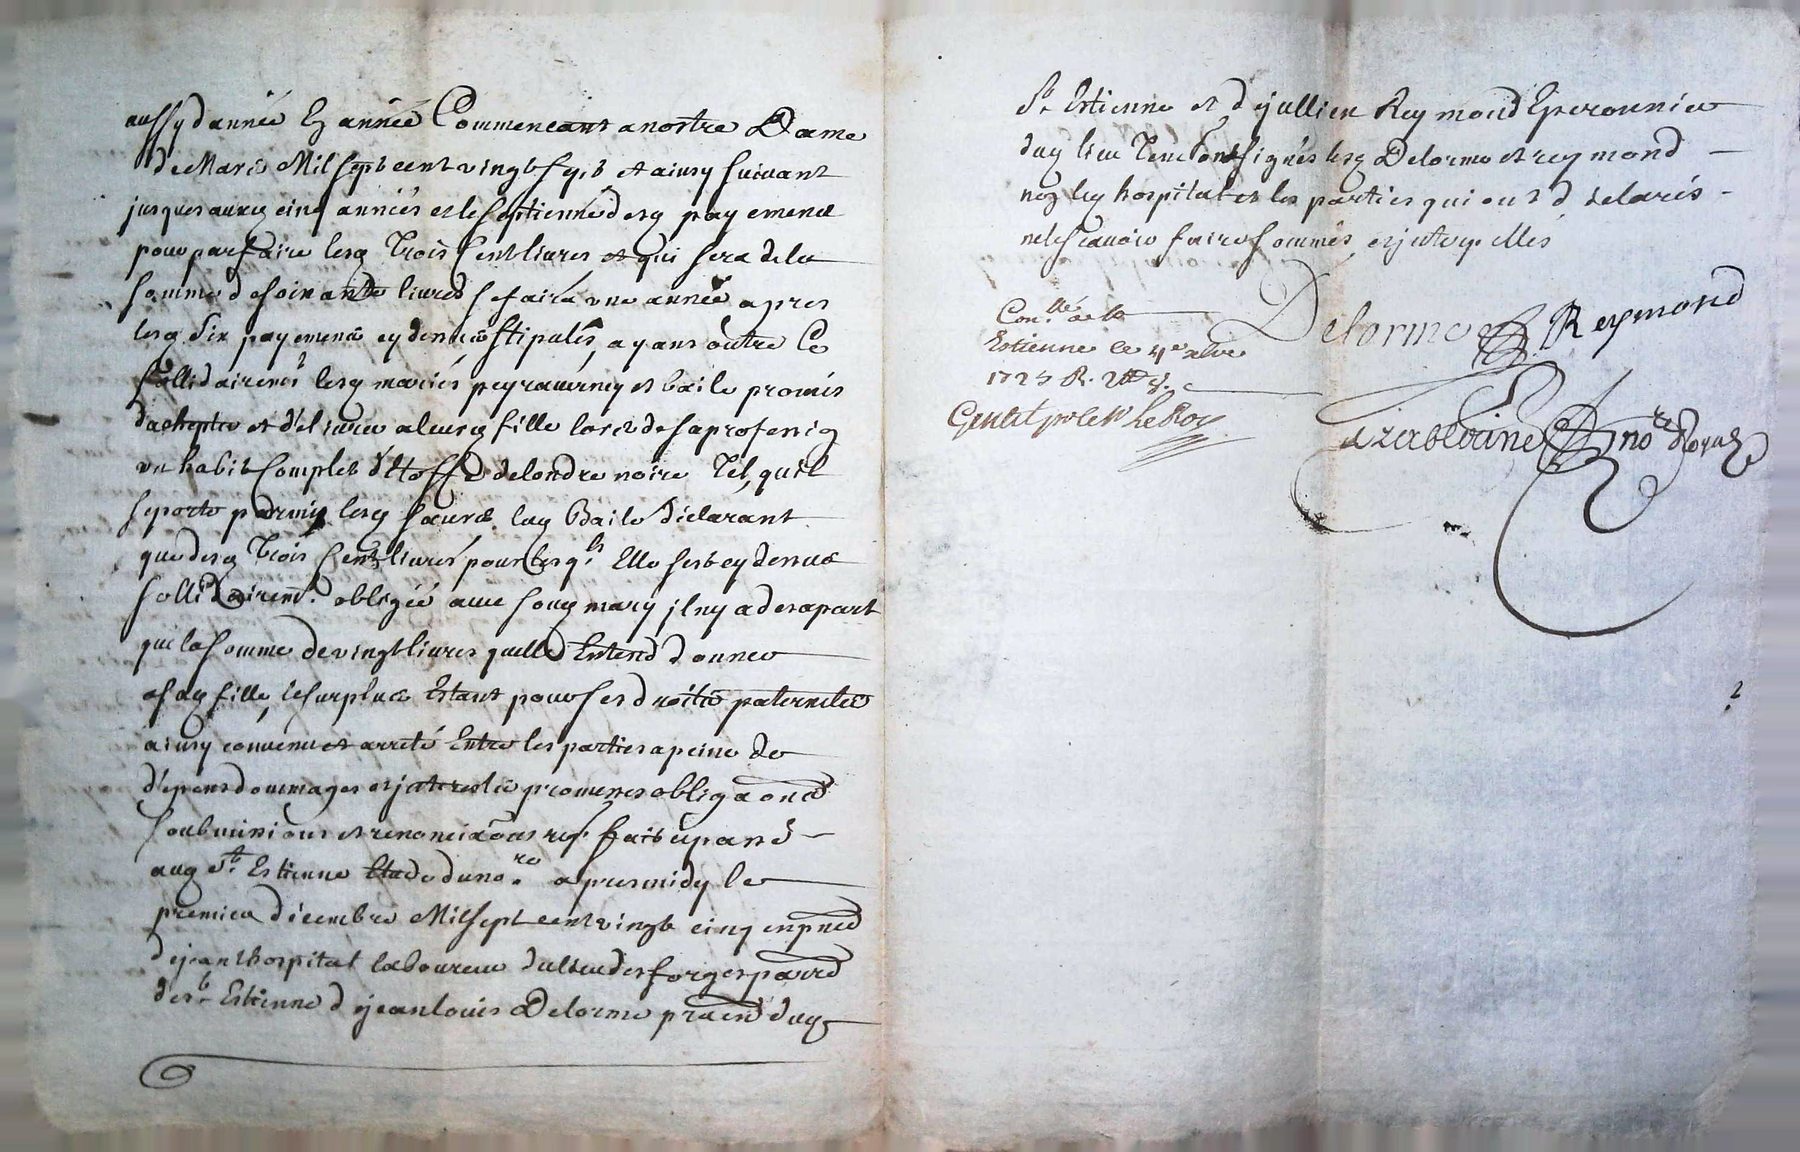 aussy d'année En année Commencant a nostre Dame
de Mars Mil sept cent vingt sept et ainsy suivant
jusques auxq cinq années et le septienne desq payemens
pour parfaire lesq Trois Cent livres et qui sera de la
somme de soixante livres se faira une année apres
lesq Six payemens cy dessus stipulés, ayans outre Ce
sollidairemt lesq mariés peyraverney et baile promis
d'achepter et délivrer a leurq fille lors de sa profession
un habit Complet d'Etoffe de londre noire Tel, quil
se porte parmis lesq saeurs laq Baile Déclarant
que desq Trois Cent livres pour lesqls Elle sest cy dessus
sollidairemt obligée avec sonq mary il ny a de sa part
que la somme de vingt livres quelle Entend donner
a sa q fille, le surplus Estant pour ses droits paternels
ainsy convenu et arreté Entre les parties a peine de
dépens dommages et jnterests promesses obligaons
soubmissions et renonciaons req. fait e passé
auq St. Estienne Etude du nore apres midy le
premier décembre Mil sept cent vingt cinq en pnce
de jean lhospital laboureur du lieu des forges parre
de St Estienne de jean louis Delorme praen duq
St Estienne et de jullien Reymond Eperonnier
duq lieu Temoins signés lesq Delorme et reymond
non leq hospital et les parties qui ont déclaré
ne le scavoir faire sommés et jnterpellés
Conllé a St
Estienne le 4e xbre
1725 R.
Delorme Reymond
nore Royal